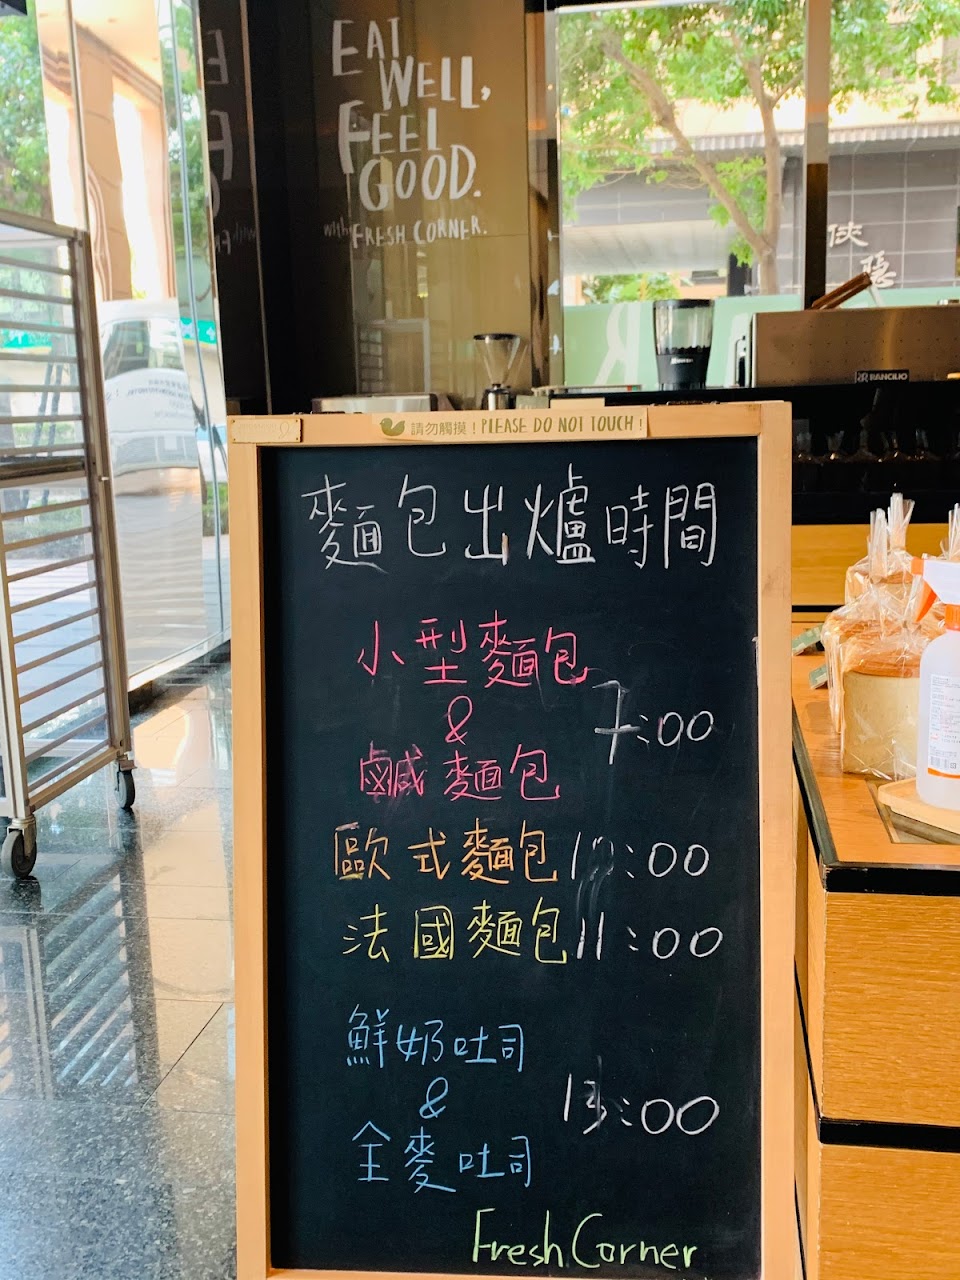 EAT
WELL,
FEEL
GOOD.
with FRESH CORNER.
俠
隱
RANCILIO
請勿觸摸！PLEASE DO NOT TOUCH！
麵包出爐時間
小型麵包
&
鹹麵包
7:00
歐式麵包 10:00
法國麵包 11:00
鮮奶吐司
&
全麥吐司
13:00
Fresh Corner